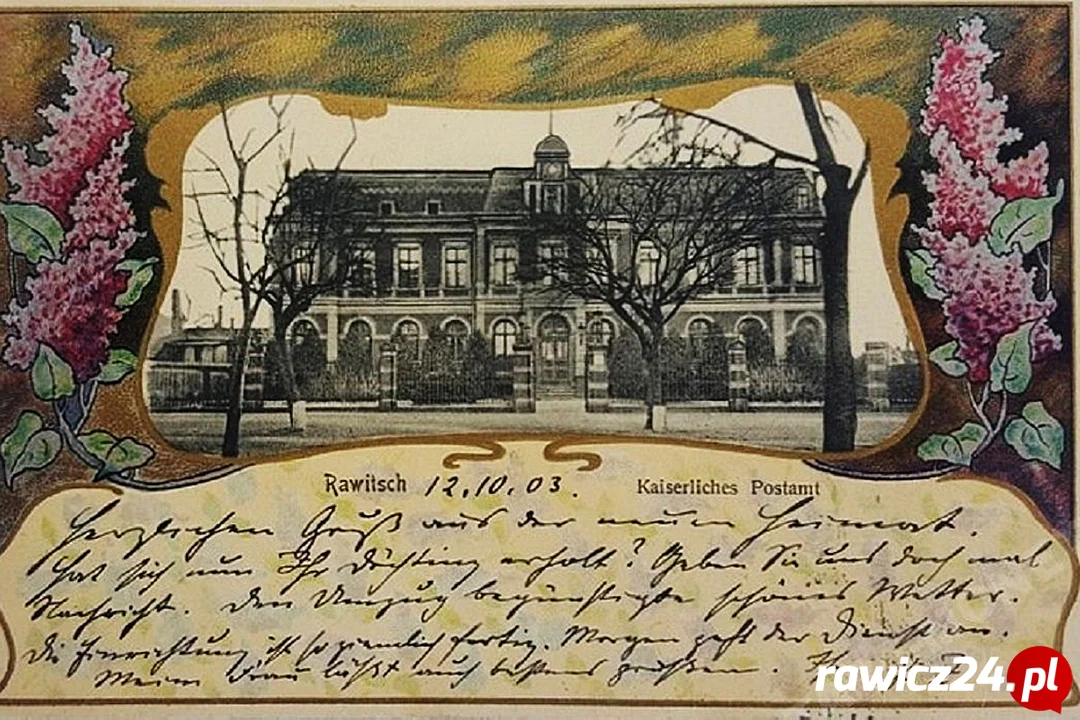 Rawitsch 12.10.03. Kaiserliches Postamt
Herzlichen Gruß aus der neuen Heimat.
Hat sich nun Ihr erholt? Geben Sie uns doch mal
Nachricht. Den Umzug begünstigte schönes Wetter.
Die Einrichtung ist so ziemlich fertig. Morgen geht der Dienst an.
Meine Frau läßt auch bestens grüßen.
rawicz24.pl